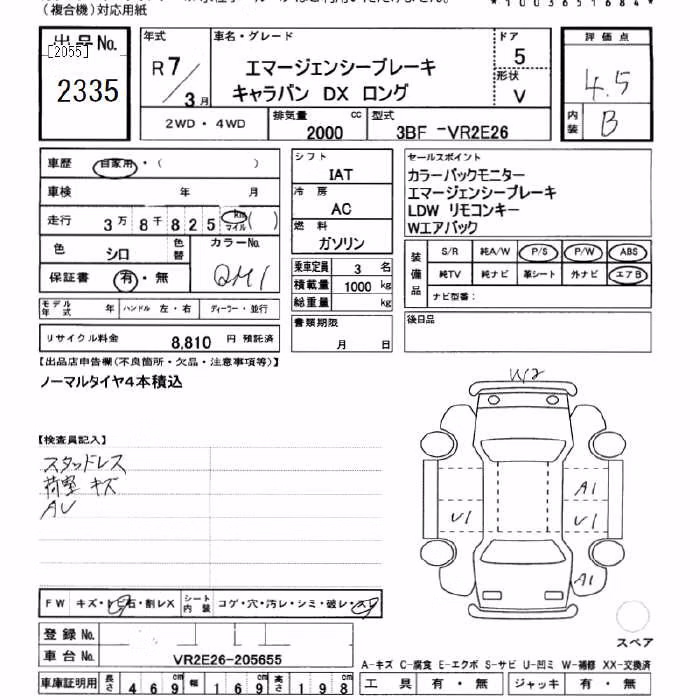 (複合機)対応用紙
*1003651684*
出品No.
[2055]
2335
年式
R7/3月
車名・グレード
エマージェンシーブレーキ
キャラバン DX ロング
ドア
5
形状
V
評価点
4.5
内装
B
2WD・4WD
排気量
2000
cc
型式
3BF -VR2E26
車歴
自家用・( )
車検 年 月
走行 3万8千825 km マイル ( )
色
シロ
色替
カラーNo.
QM1
保証書 有・無
モデル年式 年 ハンドル 左・右 ディーラー・並行
リサイクル料金 8,810 円 預託済
シフト
IAT
冷房
AC
燃料
ガソリン
乗車定員 3 名
積載量 1000 kg
総重量 kg
書類期限
月 日
セールスポイント
カラーバックモニター
エマージェンシーブレーキ
LDW リモコンキー
Wエアバック
装備品
S/R 純A/W P/S P/W ABS
純TV 純ナビ 革シート 外ナビ エアB
ナビ型番:
後日品
【出品店申告欄(不良箇所・欠品・注意事項等)】
ノーマルタイヤ4本積込
【検査員記入】
スタッドレス
荷室 キズ
AU
W2
A1
U1
U1
A1
スペア
FW キズ・トビ石・割レX
シート内装 コゲ・穴・汚レ・シミ・破レ・スレ
登録No.
車台No. VR2E26-205655
車庫証明用 長さ 469 cm 幅 169 cm 高さ 198 cm
A-キズ C-腐食 E-エクボ S-サビ U-凹ミ W-補修 XX-交換済
工具 有・無 ジャッキ 有・無